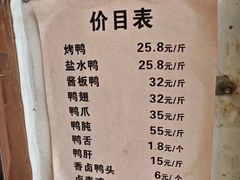 价目表
烤鸭 25.8元/斤
盐水鸭 25.8元/斤
酱板鸭 32元/斤
鸭翅 32元/斤
鸭爪 35元/斤
鸭肫 55元/斤
鸭舌 1.8元/个
鸭肝 15元/斤
香卤鸭头 6元/个